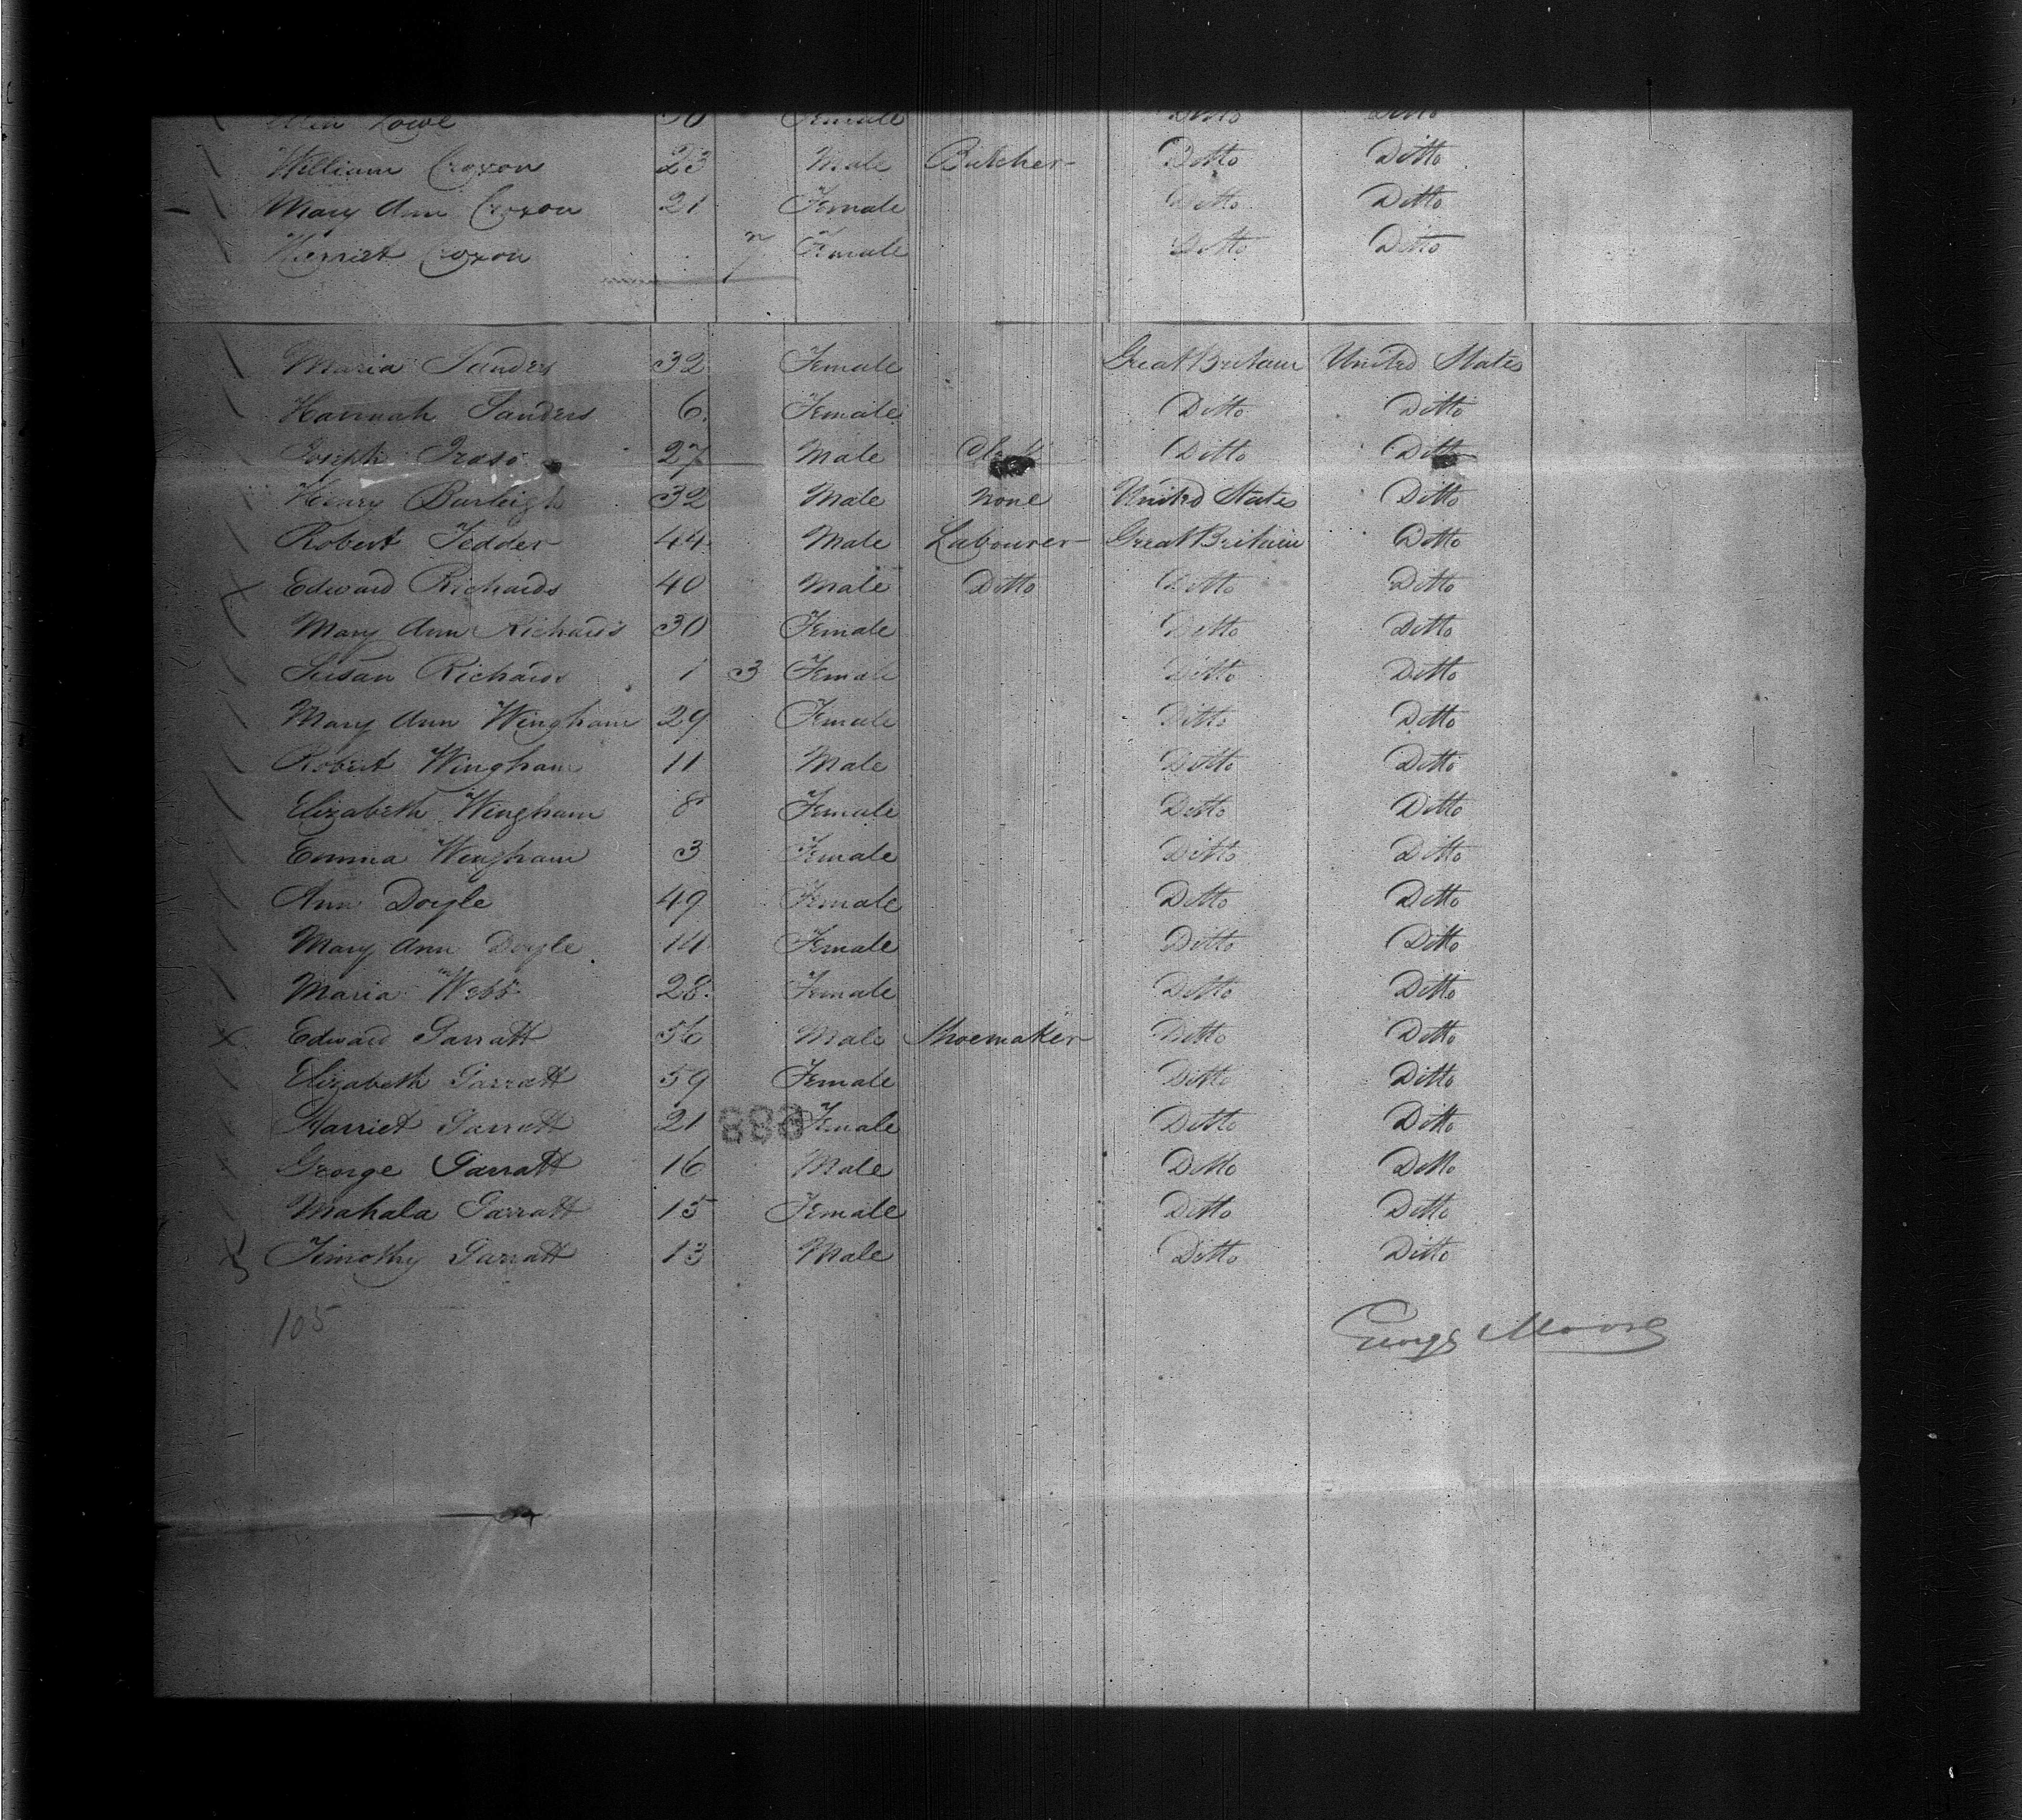 Lowe 30 Female Ditto Ditto
William Croxon 23 Male Butcher Ditto Ditto
Mary Ann Croxon 21 Female Ditto Ditto
Harriet Croxon 7 Female Ditto Ditto
Maria Sanders 32 Female Great Britain United States
Hannah Sanders 6 Female Ditto Ditto
Joseph 27 Male Ditto Ditto
Henry Burleigh 32 Male None United States Ditto
Robert Tedder 44 Male Labourer Great Britain Ditto
Edward Richards 40 Male Ditto Ditto Ditto
Mary Ann Richards 30 Female Ditto Ditto
Susan Richards 1 3 Female Ditto Ditto
Mary Ann Wingham 29 Female Ditto Ditto
Robert Wingham 11 Male Ditto Ditto
Elizabeth Wingham 8 Female Ditto Ditto
Emma Wingham 3 Female Ditto Ditto
Ann Doyle 49 Female Ditto Ditto
Mary Ann Doyle 14 Female Ditto Ditto
Maria Webb 28 Female Ditto Ditto
Edward Garratt 56 Male Shoemaker Ditto Ditto
Elizabeth Garratt 59 Female Ditto Ditto
Harriet Garratt 21 Female Ditto Ditto
George Garratt 16 Male Ditto Ditto
Mahala Garratt 15 Female Ditto Ditto
Timothy Garratt 13 Male Ditto Ditto
105
George Moore